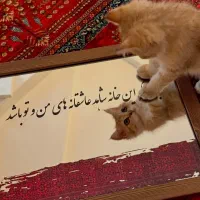 این خانه شاهد عاشقانه های من و تو باشد